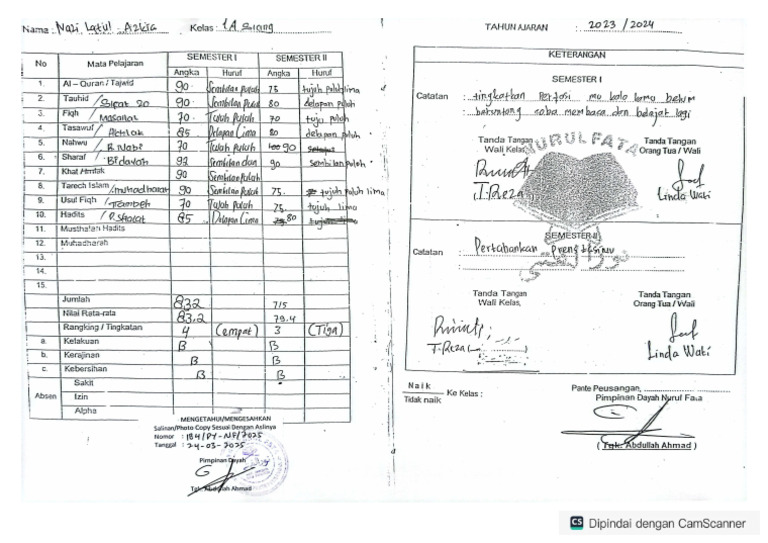 Nama : Nazi Latul - Azkia Kelas : 1A Siang
No Mata Pelajaran SEMESTER I SEMESTER II
Angka Huruf Angka Huruf
1. Al – Quran / Tajwid 90 Sembilan puluh 75 tujuh puluh lima
2. Tauhid / Sipat 20 90 Sembilan Puluh 80 delapan puluh
3. Fiqh / Masailal 70 Tujuh Puluh 70 tuju puloh
4. Tasawuf / Akhlak 85 Delapan Lima 80 delapan puluh
5. Nahwu / B. Nabi 70 Tujuh Puluh 90
6. Sharaf / Bidayah 92 Sembilan dan 90 sembilan puloh
7. Khat / Imlak 90 Sembilan Puluh
8. Tarech Islam / muhadharah 90 Sembilan Puluh 75. tujuh puluh lima
9. Usul Fiqh / Tambeh 70 Tujuh Puluh 75. tujuh lima
10. Hadits / P. Shalat 85 Delapan Lima 80
11. Musthalah Hadits
12. Muhadharah
13.
14.
15.
Jumlah 832 715
Nilai Rata-rata 83,2 79.4
Rangking / Tingkatan 4 (empat) 3 (Tiga)
a. Kelakuan B B
b. Kerajinan B B
c. Kebersihan B B
Absen Sakit
Izin
Alpha
MENGETAHUI/MENGESAHKAN
Salinan/Photo Copy Sesuai Dengan Aslinya
Nomor : 184/PY-NF/2025
Tanggal : 24-03-2025
Pimpinan Dayah
Tgk. Abdullah Ahmad
TAHUN AJARAN : 2023 / 2024
KETERANGAN
SEMESTER I
Catatan : tingkatkan Pertasi mu kalo lamo belum
beruntong coba membaca dan belajat lagi
NURUL FATA
Tanda Tangan Wali Kelas, Tanda Tangan Orang Tua / Wali
(T. Reza) Linda Wati
SEMESTER II
Catatan : Pertahankan
Tanda Tangan Tanda Tangan
Wali Kelas, Orang Tua / Wali
T. Reza Linda Wati
Naik
Tidak naik Ke Kelas :
Pante Peusangan,
Pimpinan Dayah Nurul Fata
( Tgk. Abdullah Ahmad )
CS Dipindai dengan CamScanner